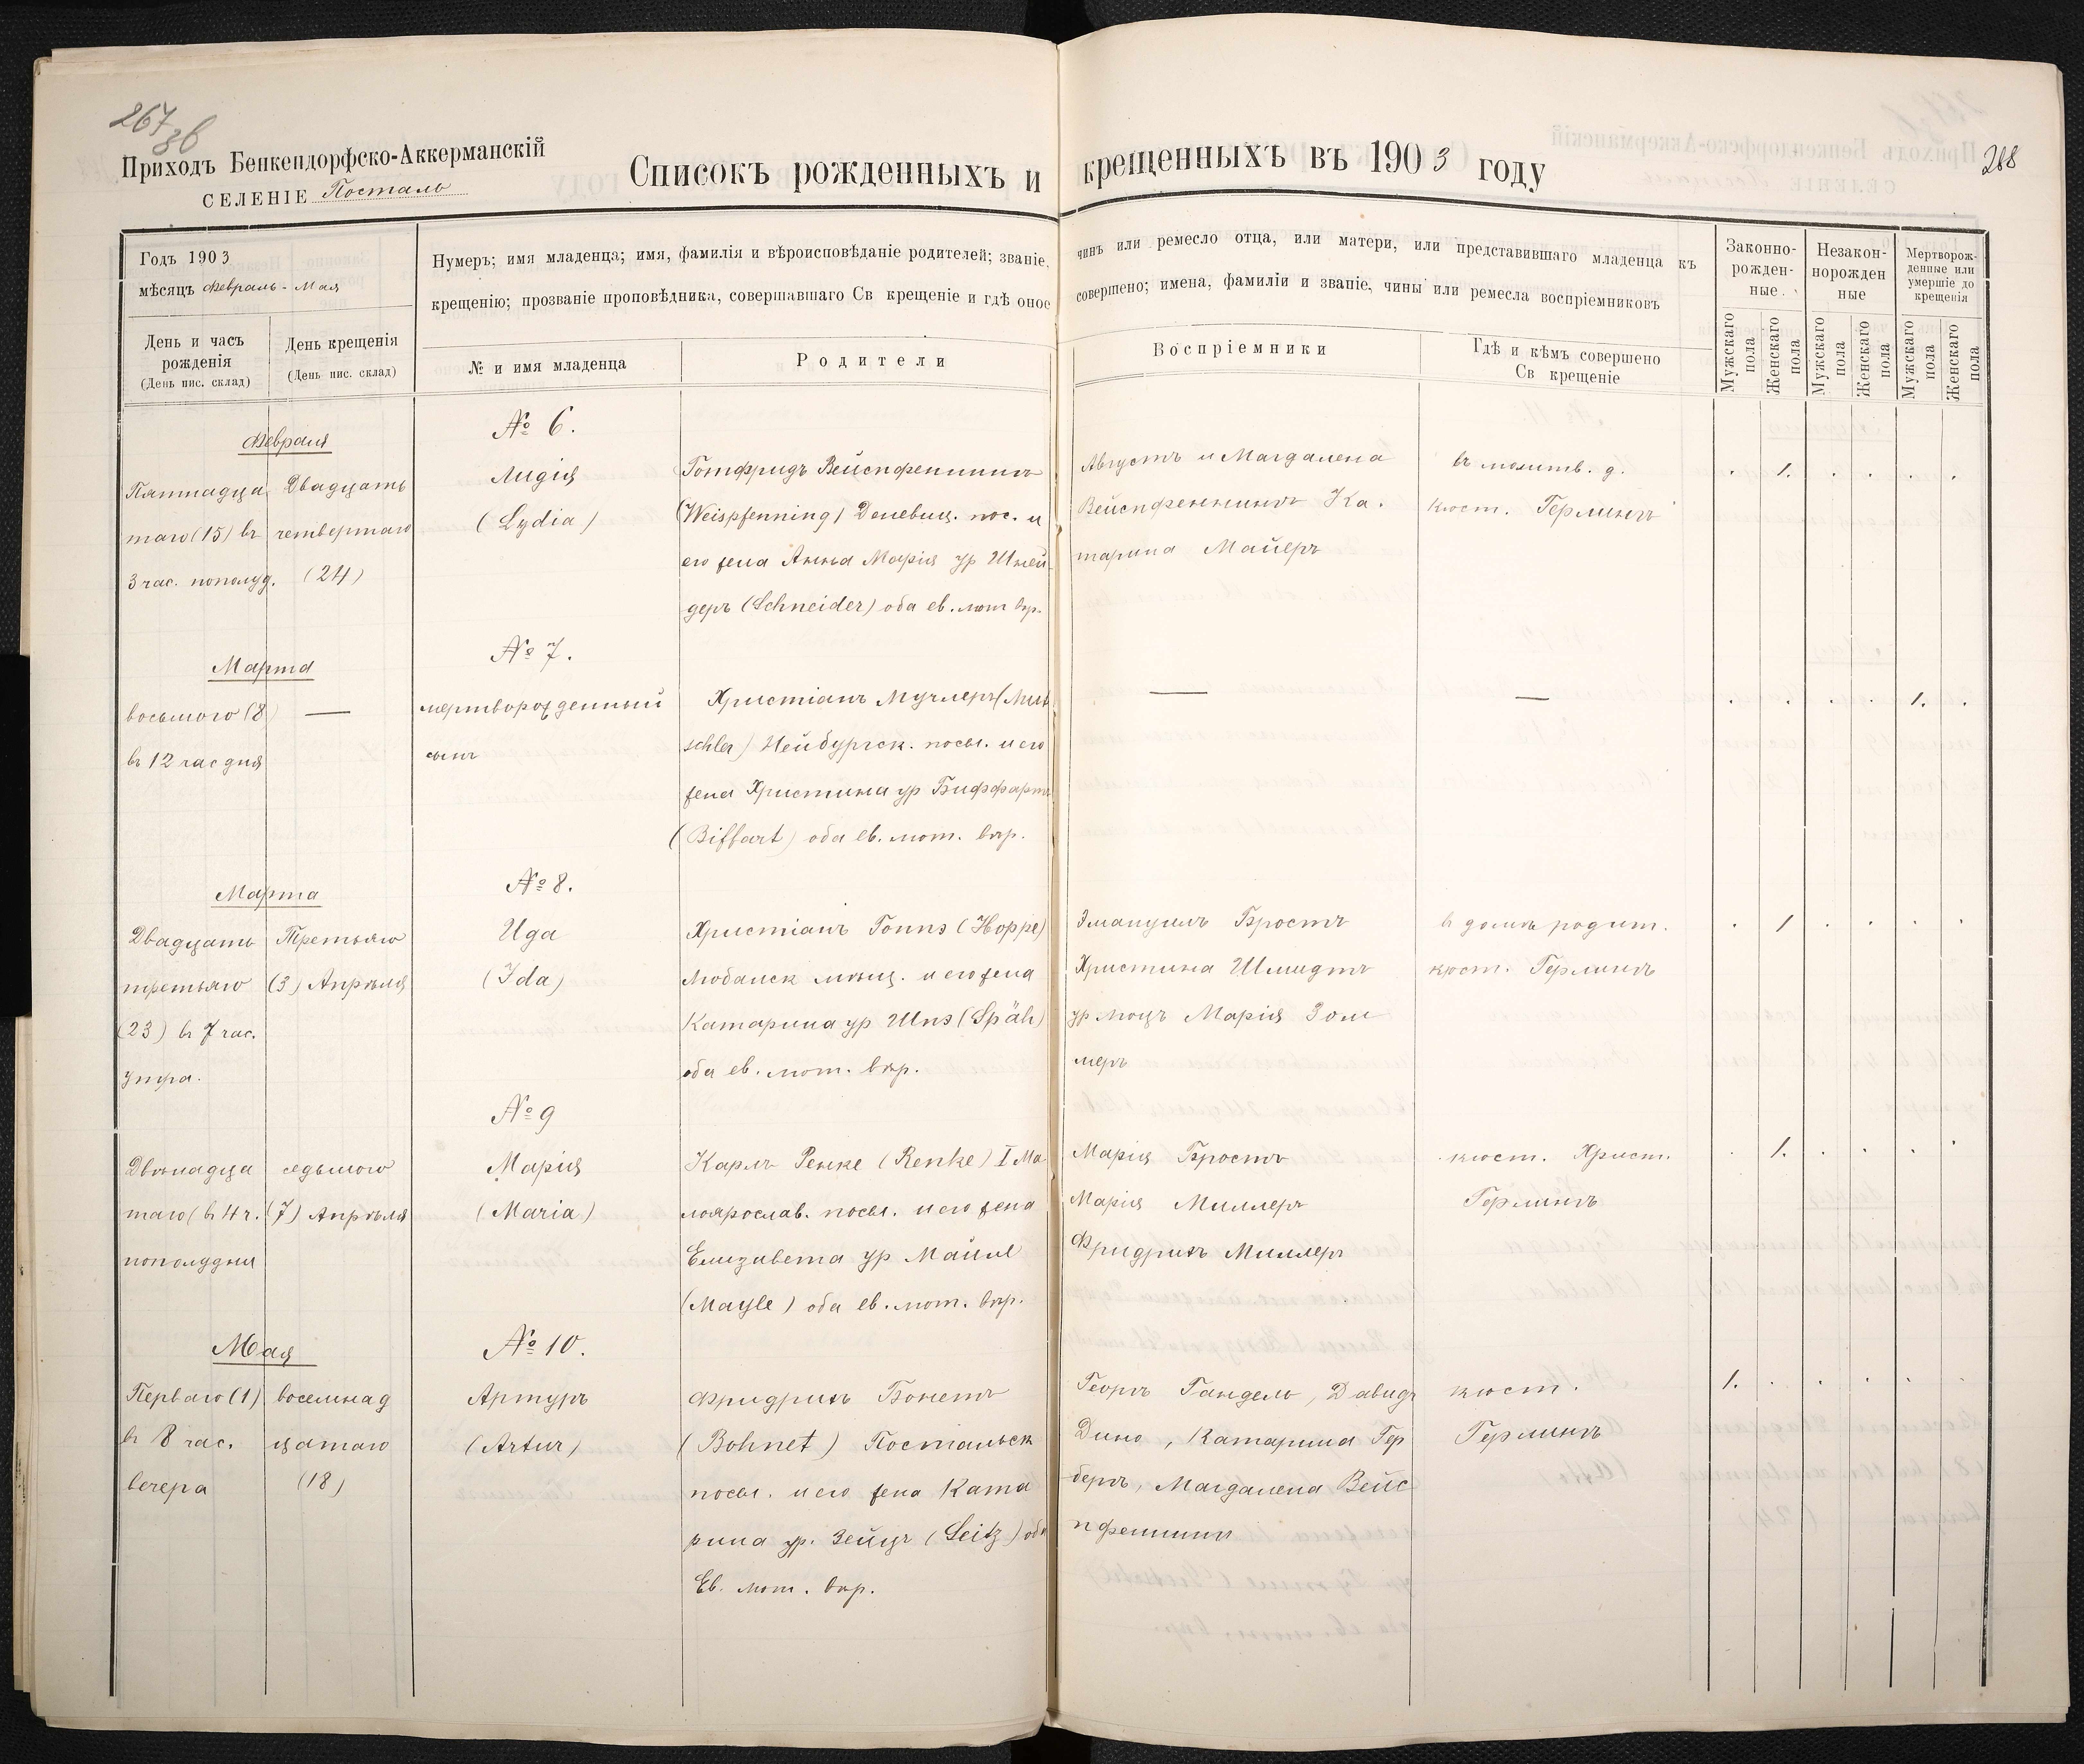 267зв
Приходъ Бенкендорфско-Аккерманскій
СЕЛЕНІЕ Посталь
Списокъ рожденныхъ и крещенныхъ въ 1903 году
268
Годъ 1903
мѣсяцъ Февраль - Мая
Нумеръ; имя младенца; имя, фамилія и вѣроисповѣданіе родителей; званіе, чинъ или ремесло отца, или матери, или представившаго младенца къ
крещенію; прозваніе проповѣдника, совершавшаго Св крещеніе и гдѣ оное совершено; имена, фамиліи и званіе, чины или ремесла воспріемниковъ
Законно-
рожден-
ные
Незакон-
норожден
ные
Мертворож-
денные или
умершіе до
крещенія
День и часъ
рожденія
(День пис. склад)
День крещенія
(День пис. склад)
№ и имя младенца
Родители
Воспріемники
Гдѣ и кѣмъ совершено
Св крещеніе
Мужскаго
пола
Женскаго
пола
Мужскаго
пола
Женскаго
пола
Мужскаго
пола
Женскаго
пола
Февраля
Пятнадца
таго (15) въ
3 час. пополуд.
Двадцать
четвертаго
(24)
№ 6.
Лидія
(Lydia)
Готфридъ Вейспфеннингъ
(Weispfenning) Деневиц. пос. и
его жена Анна Марія ур Шней-
деръ (Schneider) оба ев. лют вѣр.
Августъ и Магдалена
Вейспфеннингъ Ка.
тарина Майеръ
въ молитв. д.
кюст. Герлингъ
. 1. . . . .
Марта
восьмого (8)
въ 12 час дня
—
№ 7.
мертворожденный
сынъ
Христіанъ Мучлеръ (Mut
schler) Нейбургск. посел. и его
жена Христина ур Биффартъ
(Biffart) оба ев. лют. вѣр.
—
—
. . . . 1. .
Марта
Двадцать
третьяго
(23) въ 7 час.
утра.
Третьяго
(3) Апрѣля
№ 8.
Ида
(Ida)
Христіанъ Гоппэ (Hoppe)
Любанск мѣщ. и его жена
Катарина ур Шпэ (Späh)
оба ев. лют. вѣр.
Эмануилъ Бростъ
Христина Шмидтъ
ур Моцъ Марія Зом
меръ
въ домѣ родит.
кюст. Герлингъ
. 1 . . . .
№ 9
Двѣнадца
таго (въ 4 ч.
пополудни
седьмого
(7) Апрѣля
Марія
(Maria)
Карлъ Ренке (Renke) I Ма
лоярослав. посел. и его жена
Елизавета ур Майле
(Mayle) оба ев. лют. вѣр.
Марія Бростъ
Марія Миллеръ
Фридрихъ Миллеръ
кюст. Христ.
Герлингъ
. 1. . . . .
Мая
Перваго (1)
въ 8 час.
вечера
восемнад
цатаго
(18)
№ 10.
Артуръ
(Artur)
Фридрихъ Бонетъ
(Bohnet) Постальск
посел. и его жена Ката
рина ур. Зейцъ (Seitz) оба
Ев. лют. вѣр.
Георгъ Гандель, Давидъ
Дино, Катарина Гер
беръ, Магдалена Вейс
пфеннингъ
кюст.
Герлингъ
1. . . . . .